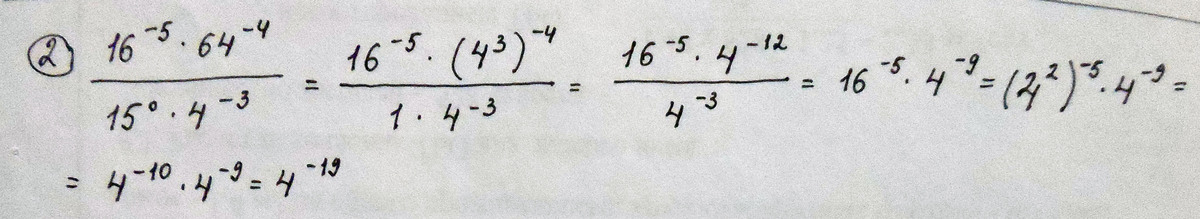 ② (16⁻⁵ · 64⁻⁴)/(15⁰ · 4⁻³) = (16⁻⁵ · (4³)⁻⁴)/(1 · 4⁻³) = (16⁻⁵ · 4⁻¹²)/(4⁻³) = 16⁻⁵ · 4⁻⁹ = (4²)⁻⁵ · 4⁻⁹ =
= 4⁻¹⁰ · 4⁻⁹ = 4⁻¹⁹